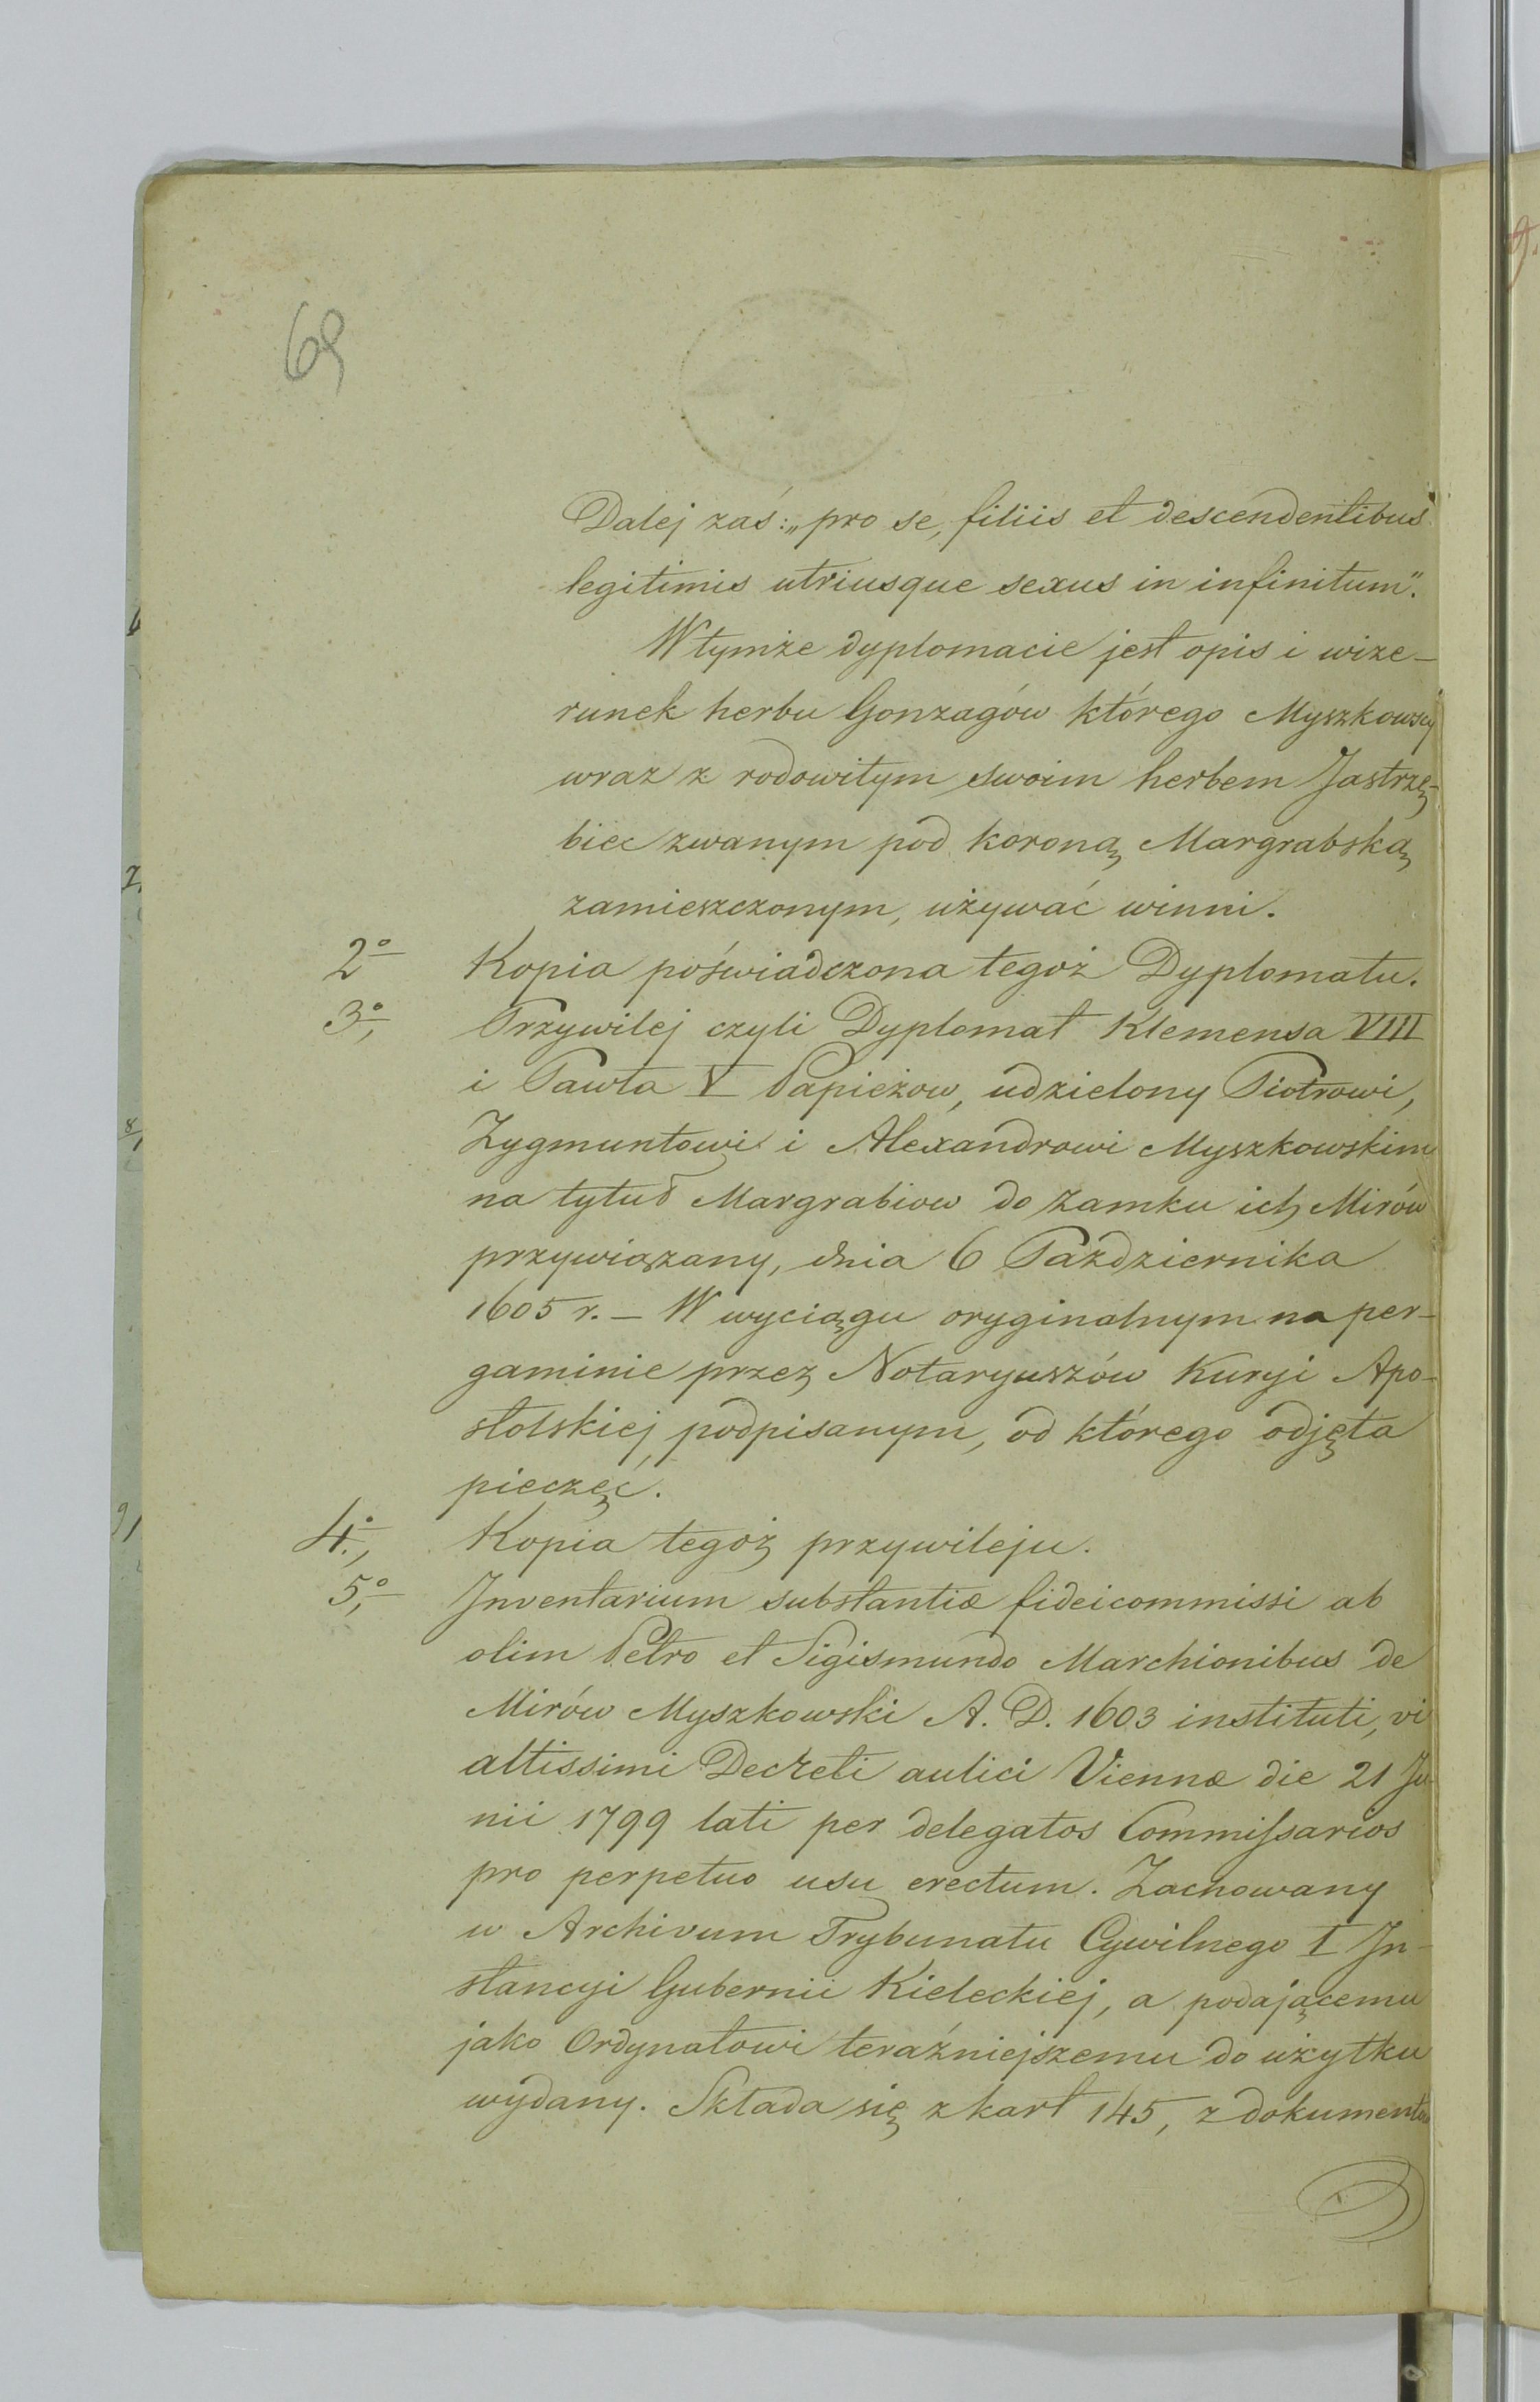 69
Dalej zaś: „pro se, filiis et descendentibus
legitimis utriusque sexus in infinitum".
W tymże dyplomacie jest opis i wize-
runek herbu Gonzagów którego Myszkowscy
wraz z rodowitym swoim herbem Jastrzę-
biec zwanym pod koroną Margrabską
zamieszczonym, używać winni.
2° Kopia poświadczona tegoż Dyplomatu.
3°, Przywilej czyli Dyplomat Klemensa VIII
i Pawła V Papieżow, udzielony Piotrowi,
Zygmuntowi i Alexandrowi Myszkowskim
na tytuł Margrabiow do Zamku ich Mirów
przywiązany, dnia 6 Października
1605 r. — W wyciągu oryginalnym na per-
gaminie przez Notaryuszów Kuryi Apo-
stolskiej podpisanym, od którego odjęta
pieczęć.
4°, Kopia tegoż przywileju.
5°, Inventarium substantiæ fideicommissi ab
olim Petro et Sigismundo Marchionibus de
Mirów Myszkowski A. D. 1603 instituti, vi
altissimi Decreti aulici Viennæ die 21 Ju-
nii 1799 lati per delegatos Commissarios
pro perpetuo usu erectum. Zachowany
w Archivum Trybunatu Cywilnego I In-
stancyi Gubernii Kieleckiej, a podającemu
jako Ordynatowi teraźniejszemu do użytku
wydany. Składa się z kart 145, z dokumentu